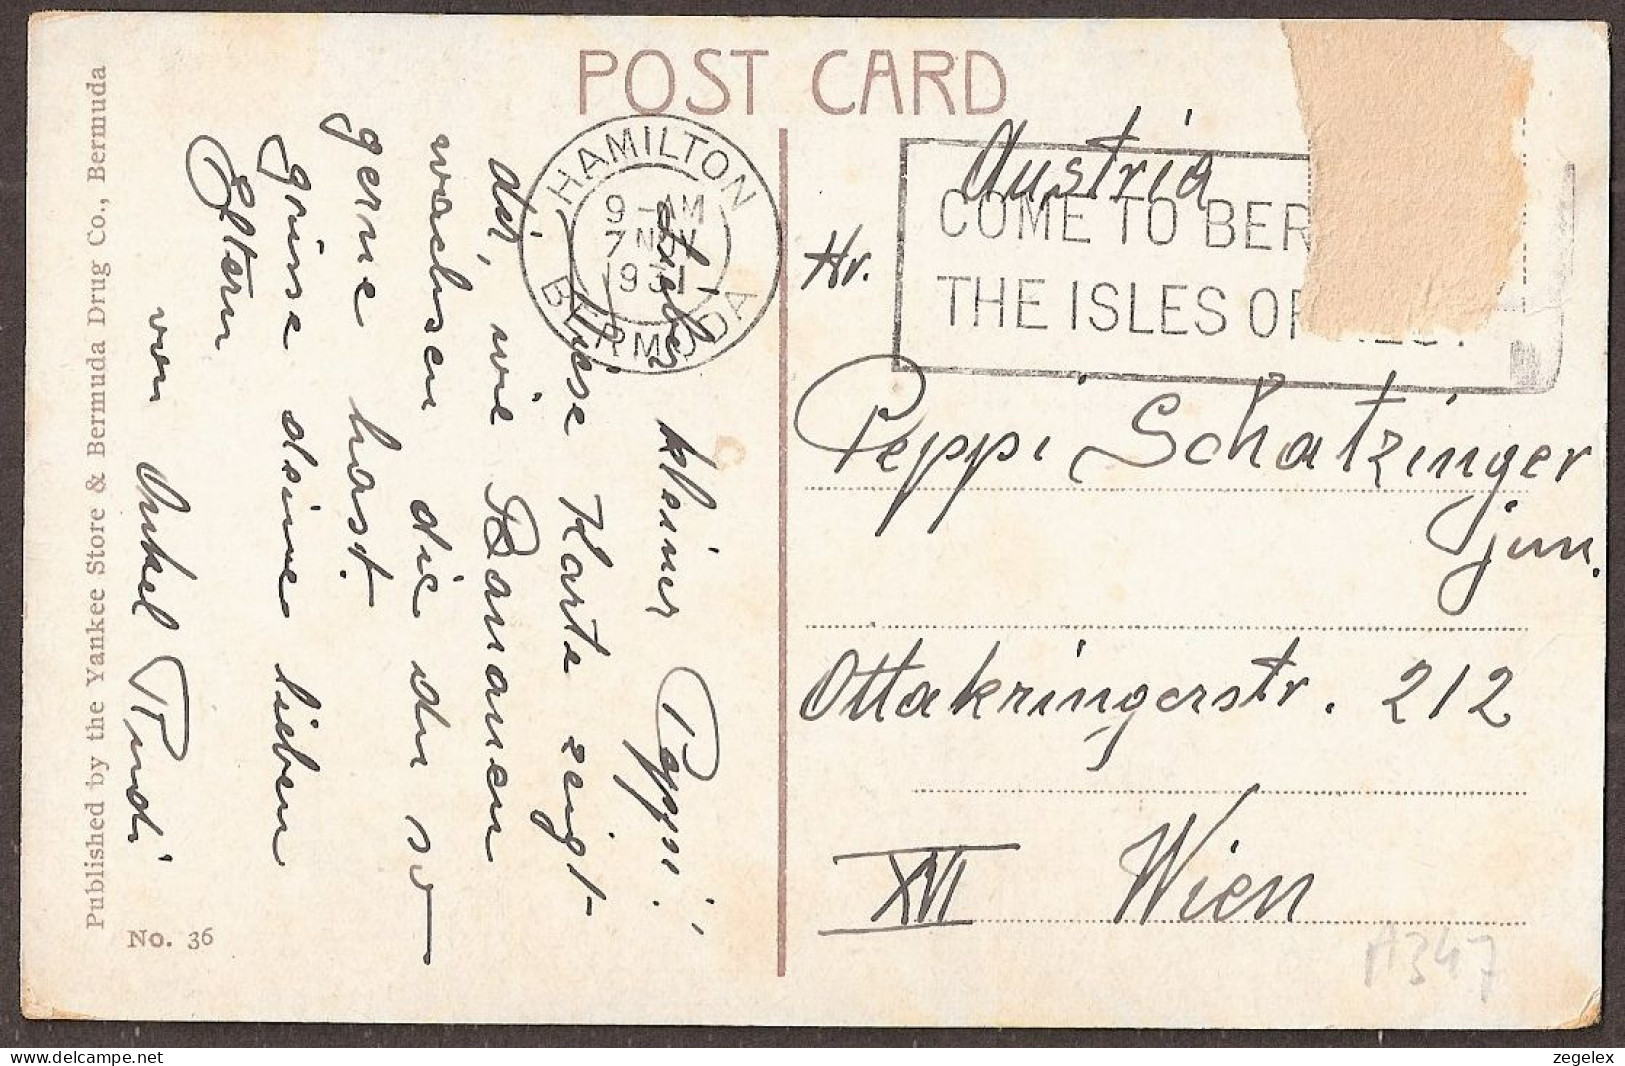 POST CARD
HAMILTON
9-AM
7 NOV
1931
BERMUDA
COME TO BER
THE ISLES OF
Austria
Hr.
Peppi Schatzinger
jun.
Ottakringerstr. 212
XVI Wien
A347
Lieber kleiner Peppi!
Diese Karte zeigt
dir, wie Bananen
wachsen die du so
gerne hast.
Grüsse deine lieben
Eltern
von Onkel Rudi
Published by the Yankee Store & Bermuda Drug Co., Bermuda
No. 36
zegelex